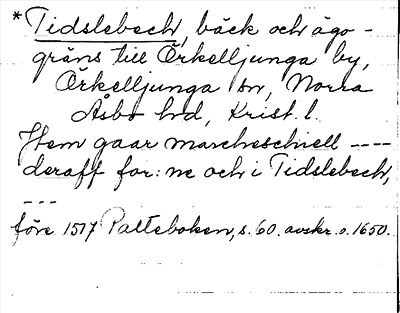 * Tidslebech, bäck och ägo-
gräns till Örkelljunga by,
Örkelljunga sn, Norra
Åsbo hd, Krist. l.
Hem gaar marcheschiell ----
deraff for: ne och i Tidslebech,
---
före 1517 Palteboken, s. 60. avskr. o. 1650.